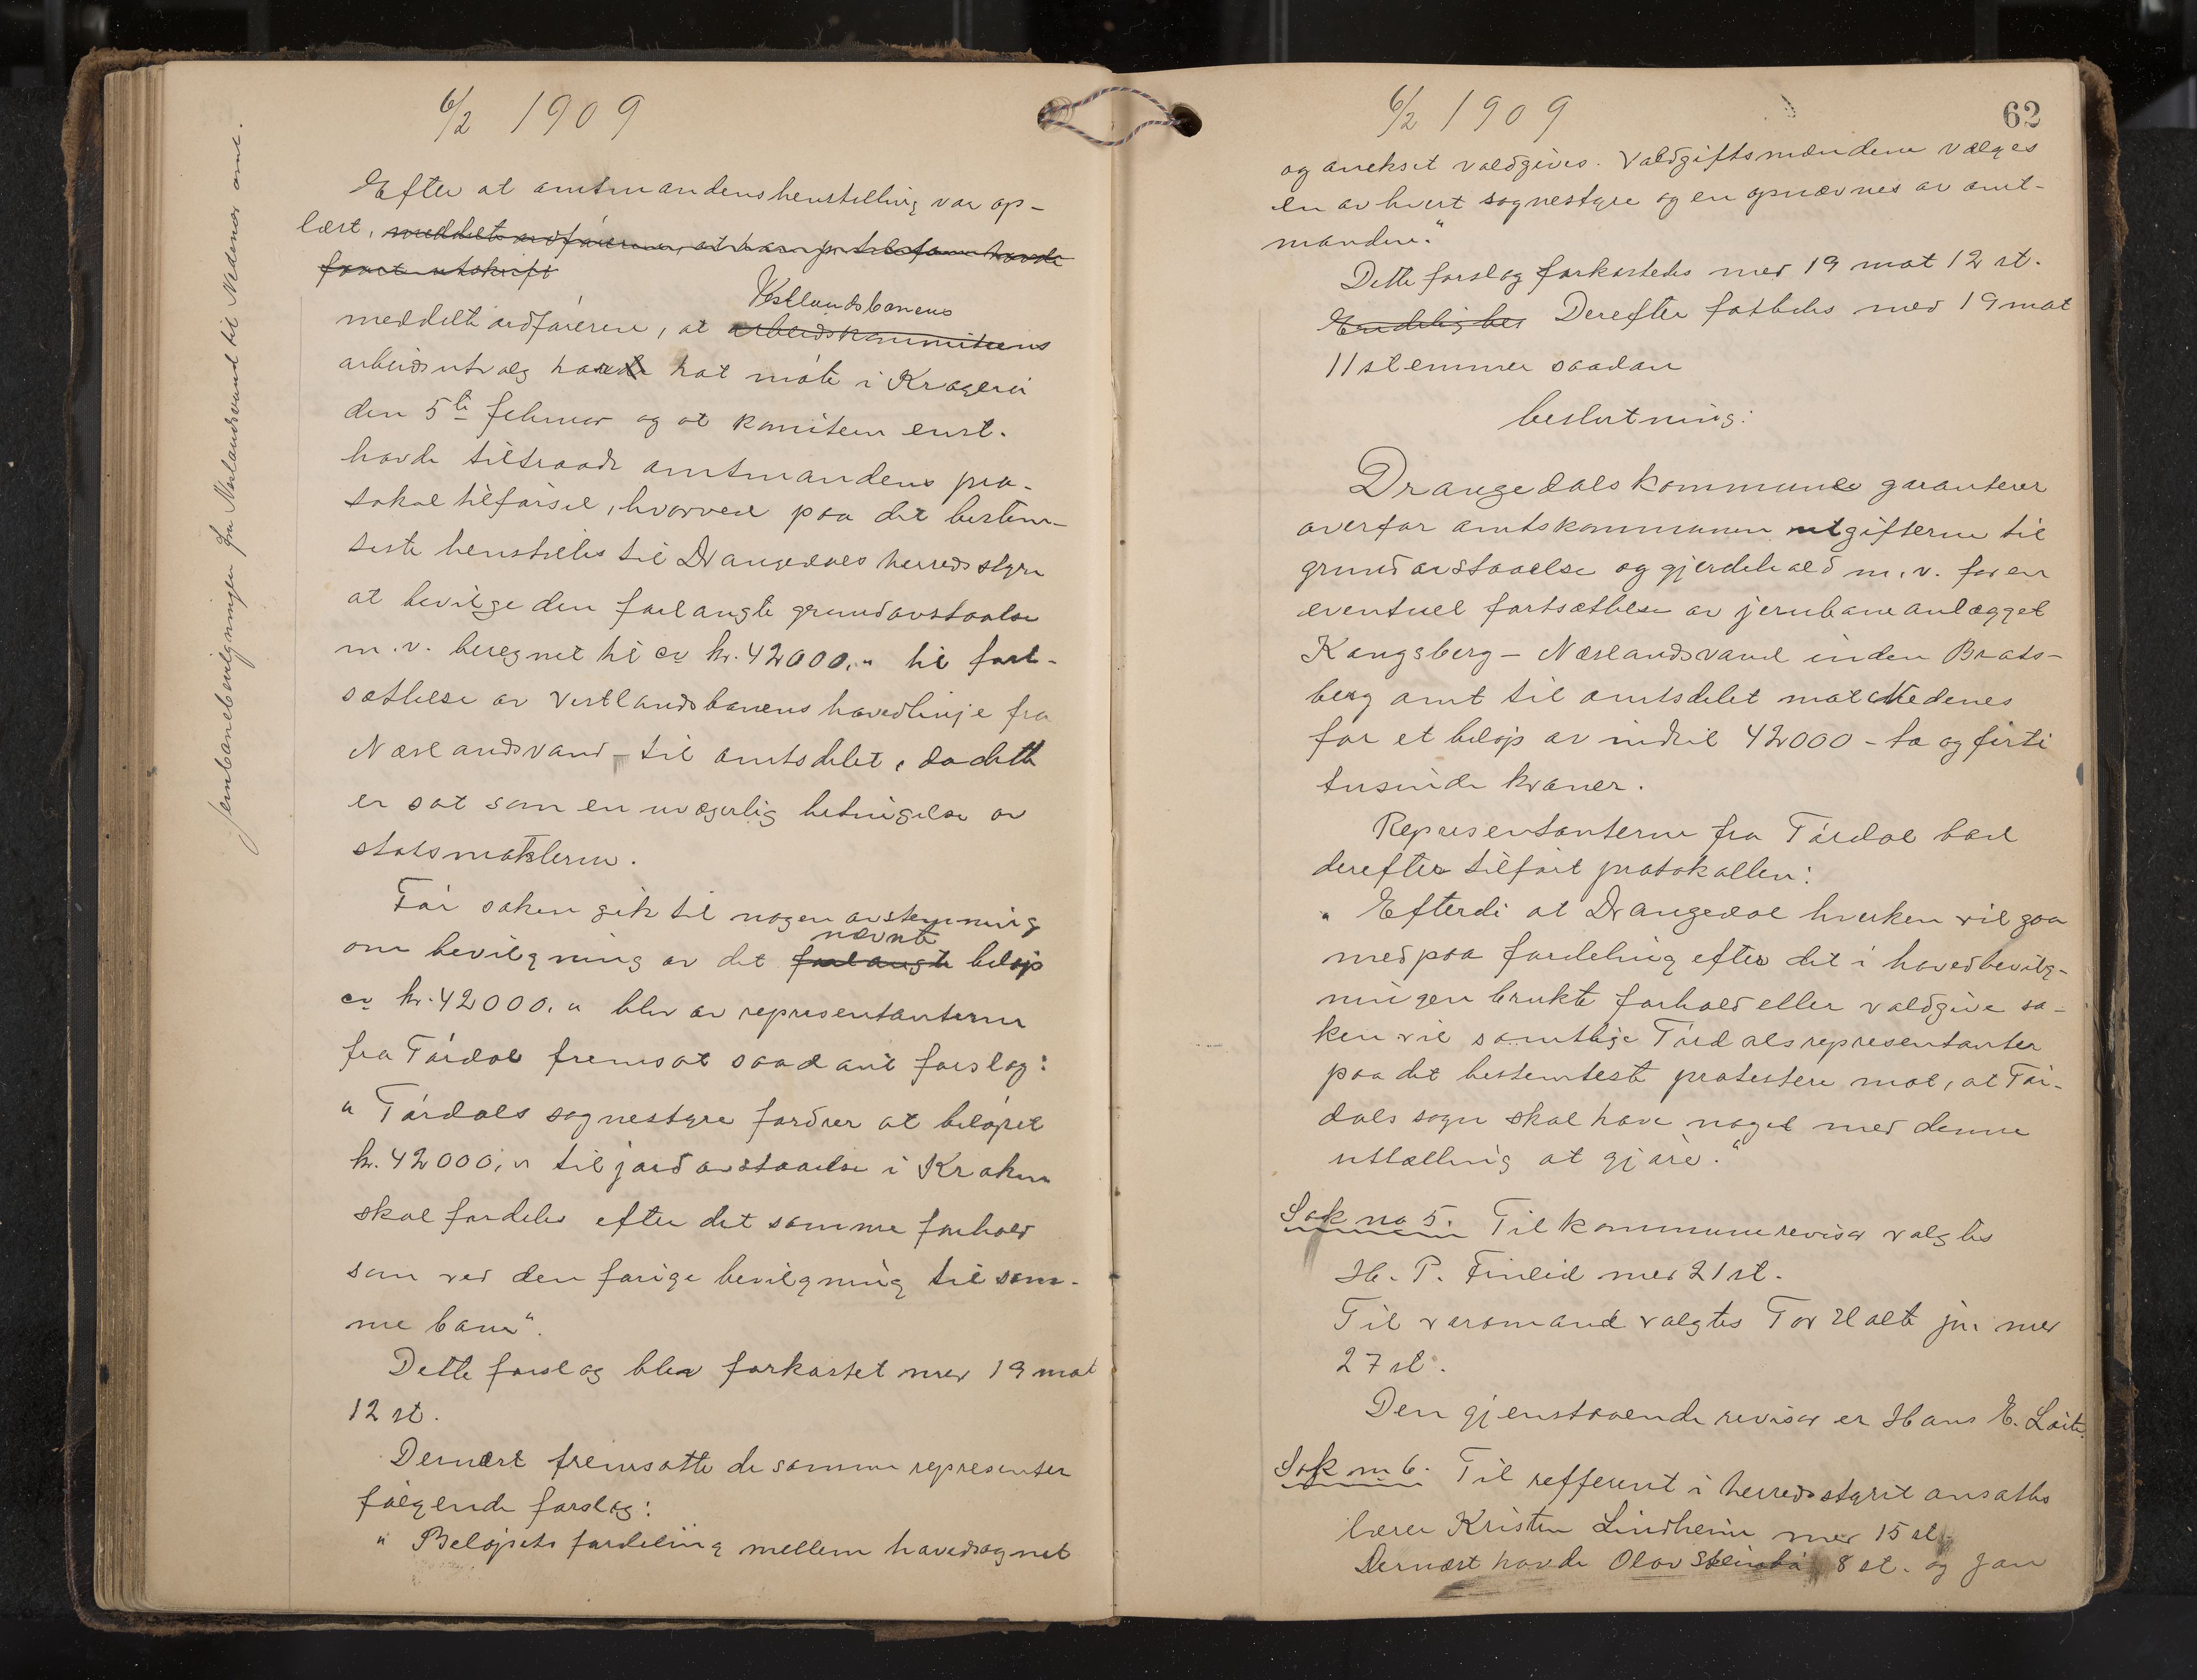 6/2 1909
Jernbanebevilgningen fra Næslandsvand til Nedenes amt.
Efter at amtmandens henstilling var op-
læst, meddelte ordføreren, at han pr telefon havde
faaet utskrift
meddelte ordføreren, at Vestlandsbanens arbeidskommiteens
arbeidsutvalg havde hat møte i Kragerø
den 5te februar og at komiteen enst.
havde tiltraadt amtmandens pro-
tokoltilførsel, hvorved paa det bestem-
teste henstilles til Drangedals herredsstyre
at bevilge den forlangte grundavstaaelse
m.v. beregnet til ca kr. 42000,„ til fort-
sættelse av Vestlandsbanens hovedlinje fra
Næslandsvand til amtsdelet, da dette
er sat som en uvægerlig betingelse av
statsmakterne.
Før saken gik til nogen avstemning
om bevilgning av det forlangte nævnte beløp
ca kr. 42000,„ blev av representanterne
fra Tørdal fremsat saadant forslag:
„Tørdals sognestyre fordrer at beløpet
kr. 42000,„ til jordavstaaelse i Kroken
skal fordeles efter det samme forhold
som ved den forige bevilgning til sam-
me bane".
Dette forslag blev forkastet med 19 mot
12 st.
Dernæst fremsatte de samme representer
følgende forslag:
„Beløpets fordeling mellem hovedsognet
6/2 1909
62
og annekset voldgives. Voldgiftsmændene vælges
en av hvert sognestyre og en opnævnes av amt-
manden."
Dette forslag forkastedes med 19 mot 12 st.
Endelig blev Derefter fattedes med 19 mot
11 stemmer saadan
beslutning:
Drangedals kommune garanterer
overfor amtskommunen utgifterne til
grundavstaaelse og gjerdehold m.v. for en
eventuel fortsættelse av jernbaneanlægget
Kongsberg - Næslandsvand inden Brats-
berg amt til amtsdelet mot Nedenes
for et beløp av indtil 42000 - to og firti
tusinde kroner.
Representanterne fra Tørdal bad
derefter tilført protokollen:
„Efterdi at Drangedal hverken vil gaa
med paa fordeling efter det i hovedbevilg-
ningen brukte forhold eller voldgive sa-
ken vil samtlige Tørdalsrepresentanter
paa det bestemteste protestere mot, at Tør-
dals sogn skal have noget med denne
uttælling at gjøre."
Sak no 5. Til kommunerevisor valgtes
H. P. Finlid med 21 st.
Til varamand valgtes Tor Halte jr. med
27 st.
Den gjenstaaende revisor er Hans E. Løite.
Sak no 6. Til refferent i herredsstyret ansattes
lærer Kristen Lindheim med 15 st.
Dernæst havde Olav Steinbø 8 st. og Jan